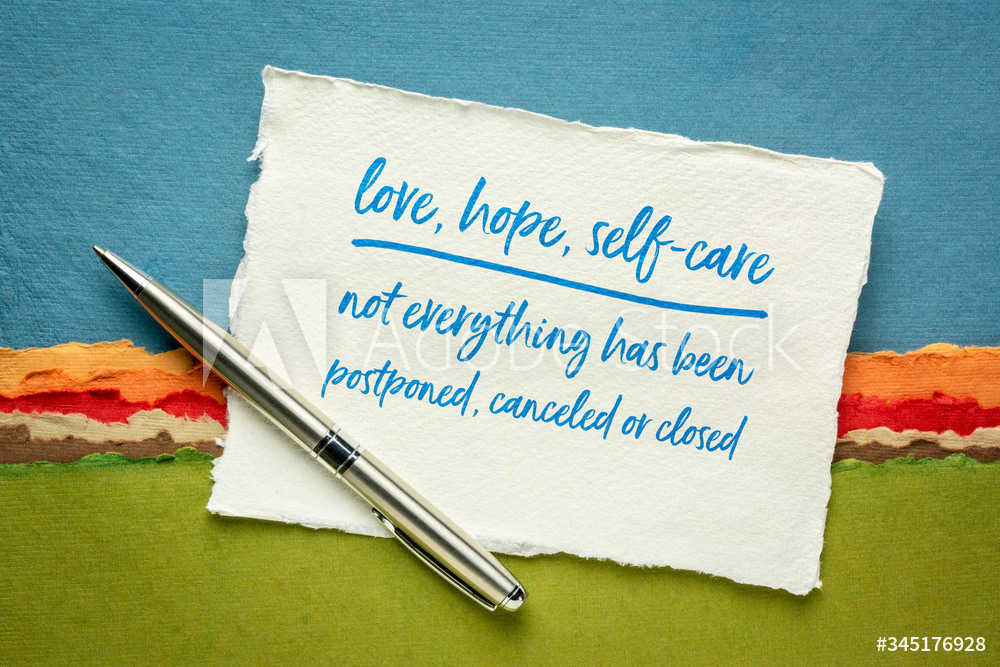 love, hope, self-care
not everything has been
postponed, canceled or closed
Adobe Stock
#345176928